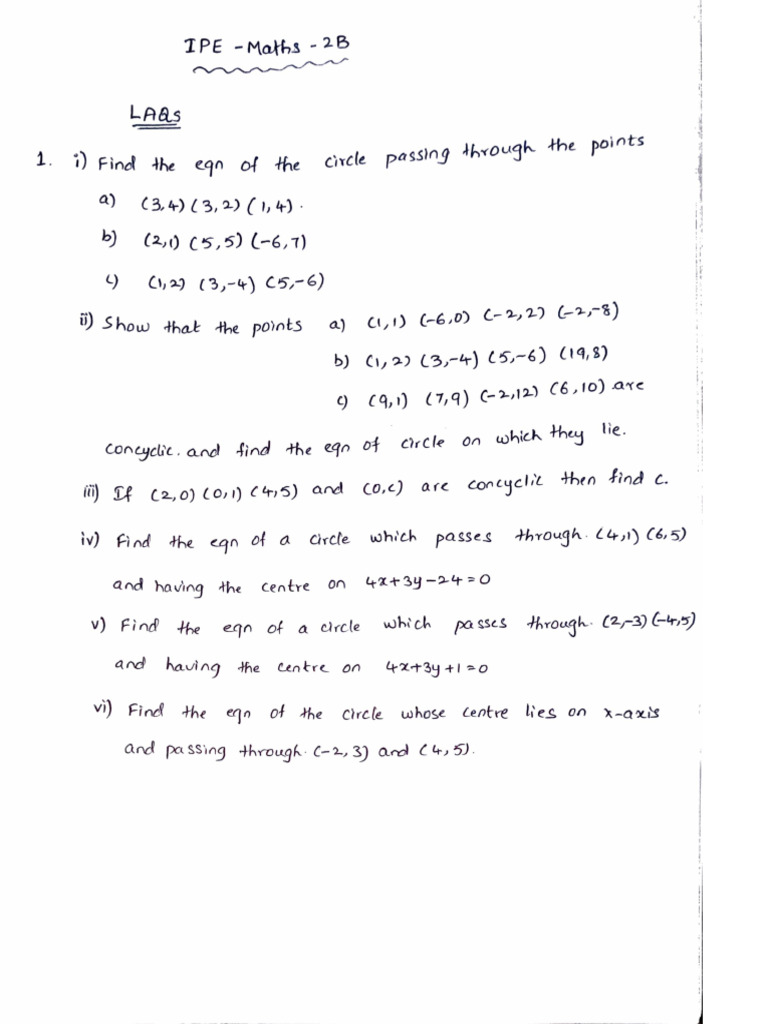 IPE - Maths - 2B
LAQs
1. i) Find the eqn of the circle passing through the points
a) (3,4) (3,2) (1,4).
b) (2,1) (5,5) (-6,7)
c) (1,2) (3,-4) (5,-6)
ii) Show that the points a) (1,1) (-6,0) (-2,2) (-2,-8)
b) (1,2) (3,-4) (5,-6) (19,8)
c) (9,1) (7,9) (-2,12) (6,10) are
concyclic. and find the eqn of circle on which they lie.
iii) If (2,0) (0,1) (4,5) and (0,c) are concyclic then find c.
iv) Find the eqn of a circle which passes through. (4,1) (6,5)
and having the centre on 4x+3y-24=0
v) Find the eqn of a circle which passes through. (2,-3) (-4,5)
and having the centre on 4x+3y+1=0
vi) Find the eqn of the circle whose centre lies on x-axis
and passing through. (-2,3) and (4,5).